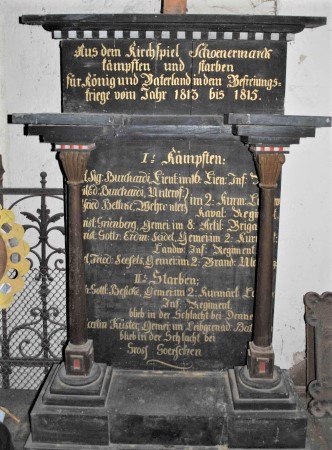 Aus dem Kirchspiel Schoenermarck
kämpften und starben
für König und Vaterland in dem Befreiungs-
kriege vom Jahr 1813 bis 1815.
I: Kämpften:
Burchardi, Lieut: im 16. Inf:
Burchardi, Unterof:
Bethke, Wehrm: im 2. Kurm:
Caval: Regim
Grünberg, Gemei: im 8 Artil: Briga
Gottfr: Seidel, Gemei: im 2. Kurm
Landw: Inf: Regiment
Fried: Seefels, Gemei: im 2: Brand:
II: Starben:
Gottl: Gemei: im 2. Kurmärk:
Inf: Regiment
blieb in der Schlacht bei Denne
Küster, Gemei: im Leibgrend: Bat
blieb in der Schlacht bei
Gros Goerschen